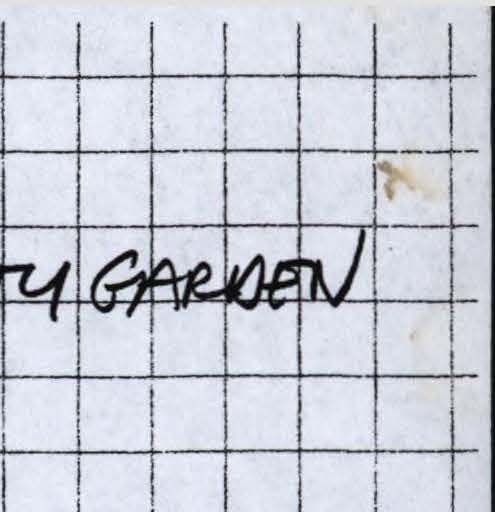 TY GARDEN